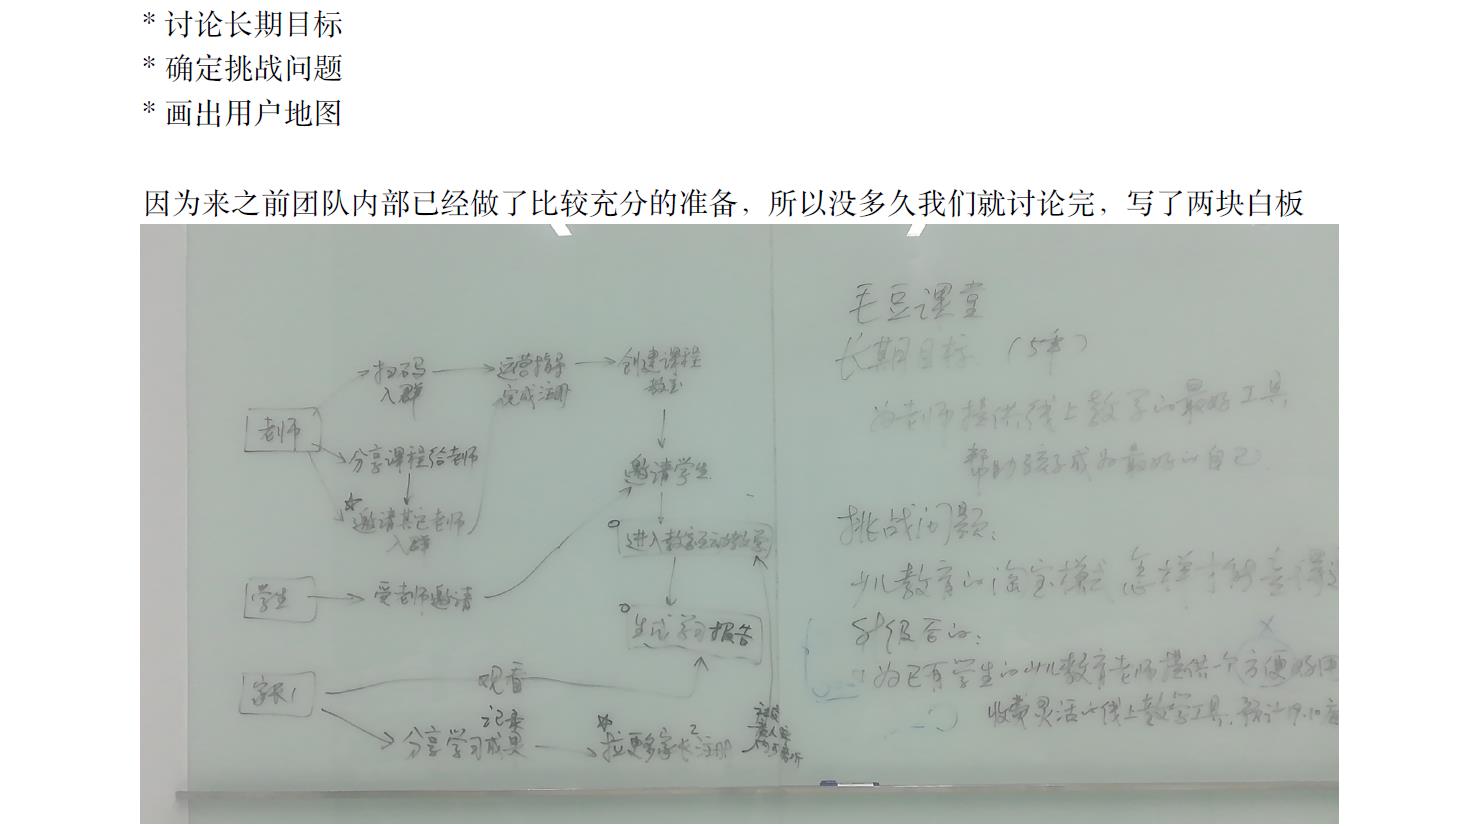 * 讨论长期目标
* 确定挑战问题
* 画出用户地图
因为来之前团队内部已经做了比较充分的准备，所以没多久我们就讨论完，写了两块白板
老师
扫码
入群
运营指导
完成注册
创建课程
教室
分享课程给老师
邀请其它老师
入群
邀请学生
进入教室互动教学
生成学习报告
学生
受老师邀请
家长1
观看
记录
分享学习成果
拉更多家长2注册
毛豆课堂
长期目标 （5年）
为老师提供线上教学的最好工具
帮助孩子成为最好的自己
挑战问题：
少儿教育的淘宝模式 怎样才能
升级目的：
为已有学生的少儿教育老师提供一个方便好用
收费灵活的线上教学工具，预计